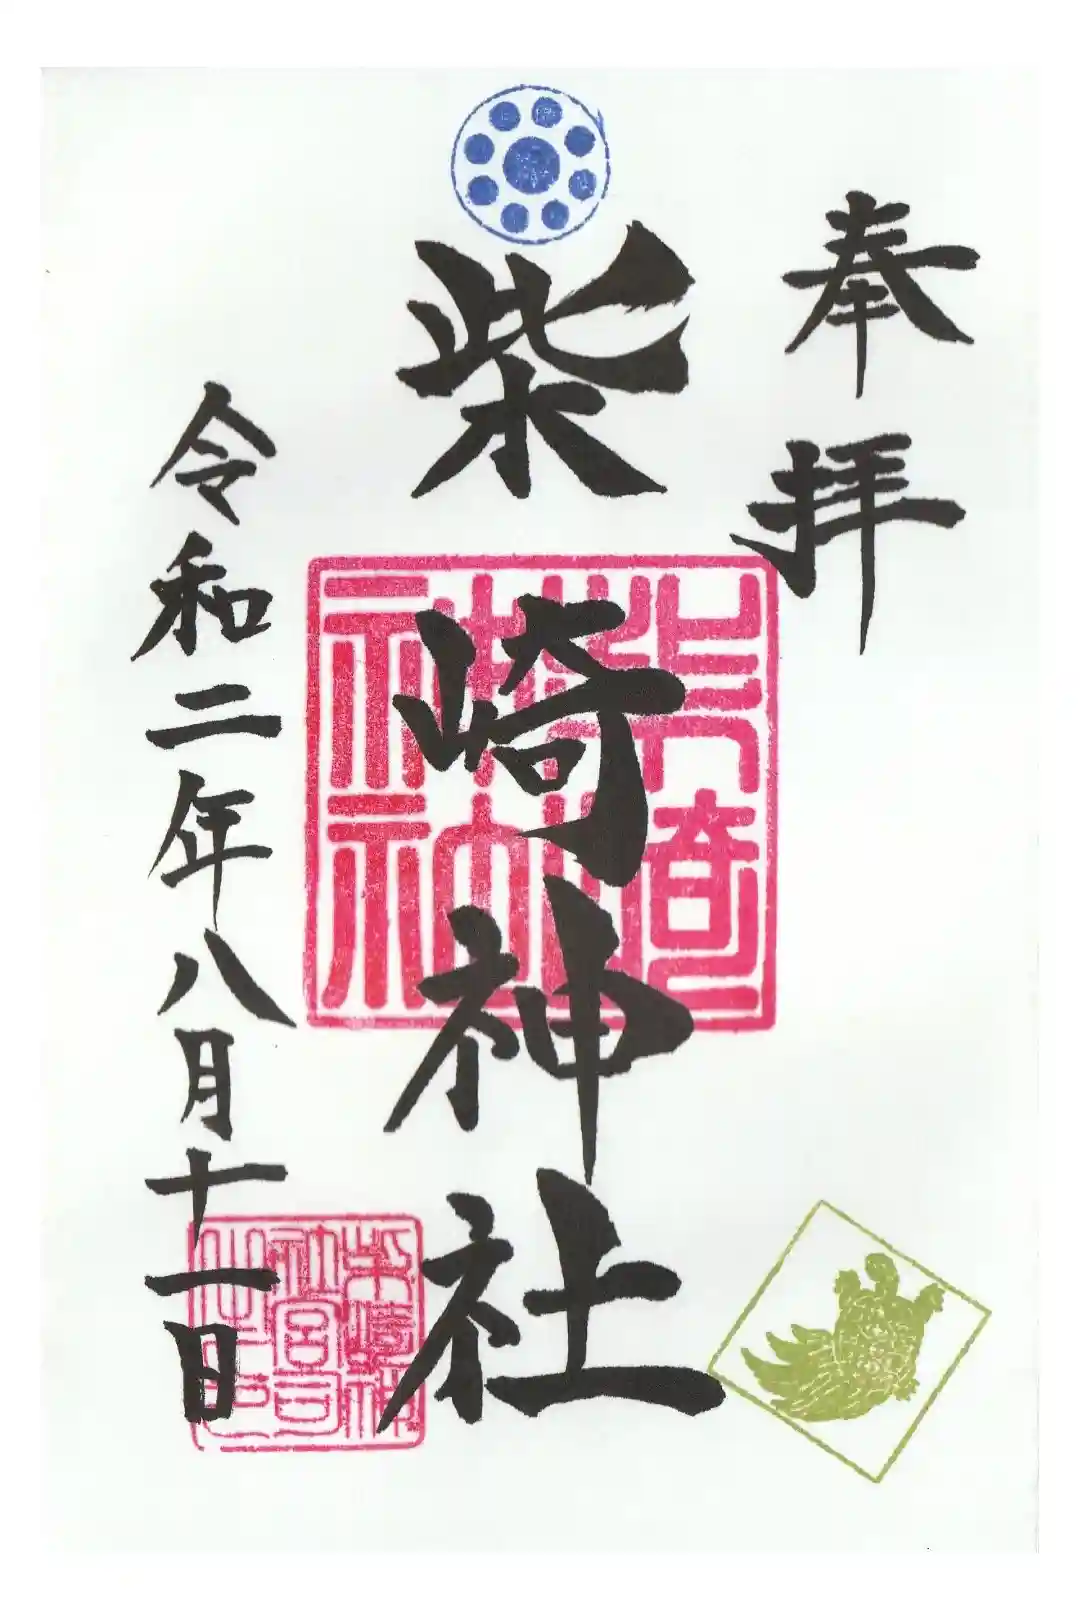 奉拝
柴崎神社
令和二年八月十一日
柴崎神
社宮司
之印